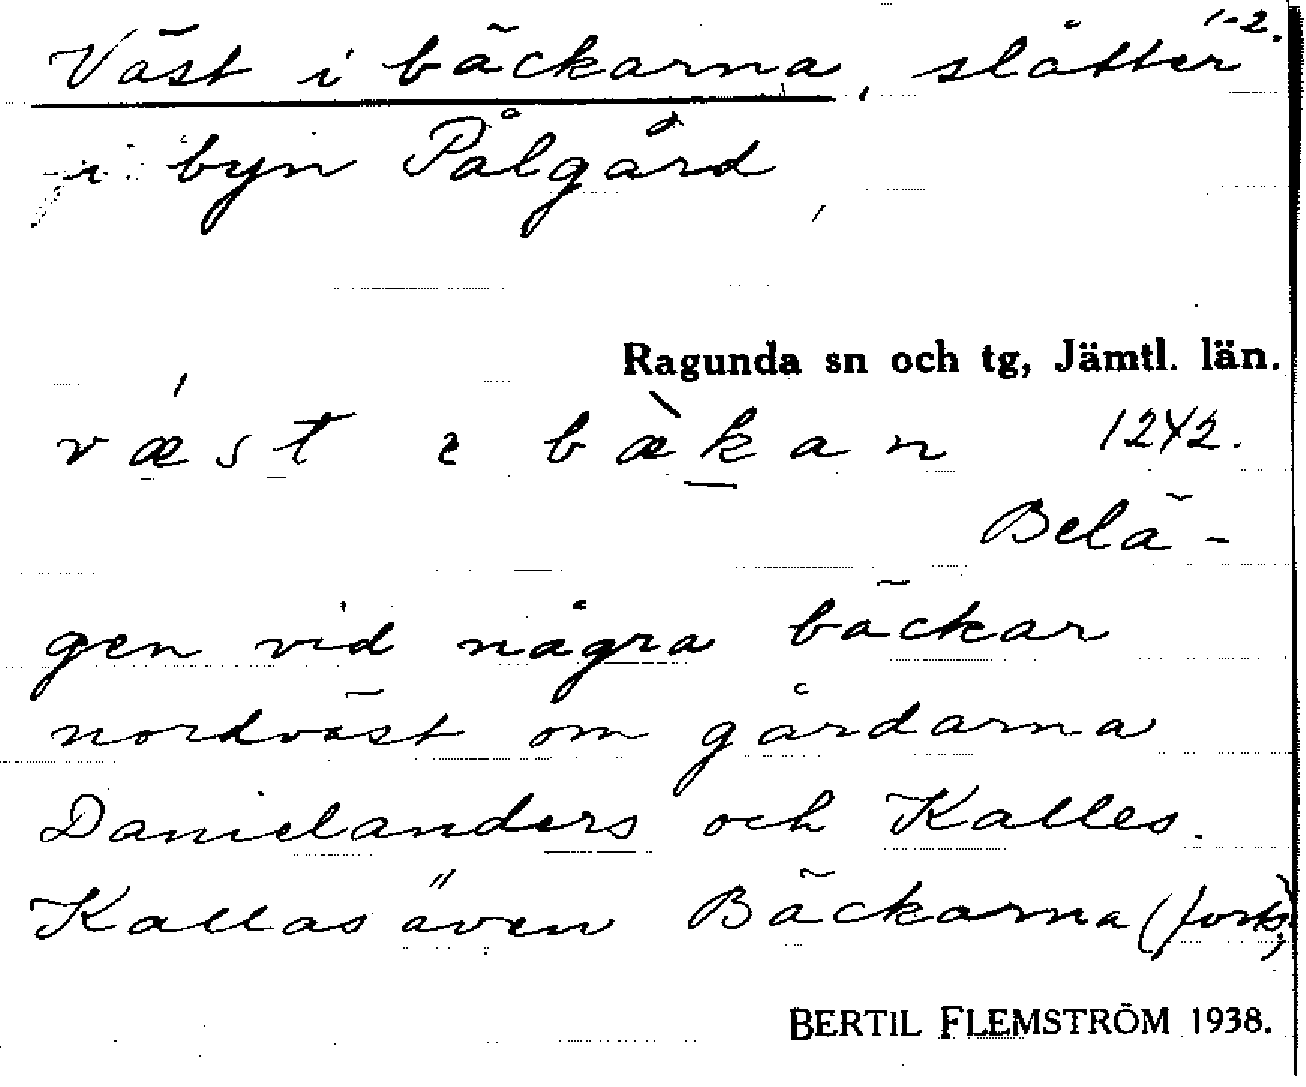 Väst i bäckarna, slåtter 1-2.
i byn Pålgård
Ragunda sn och tg, Jämtl. län.
væ̀st ɩ bæ̀kan 1242.
Belä-
gen vid några bäckar
nordväst om gårdarna
Danielanders och Kalles.
Kallas även Bäckarna (forts.)
BERTIL FLEMSTRÖM 1938.